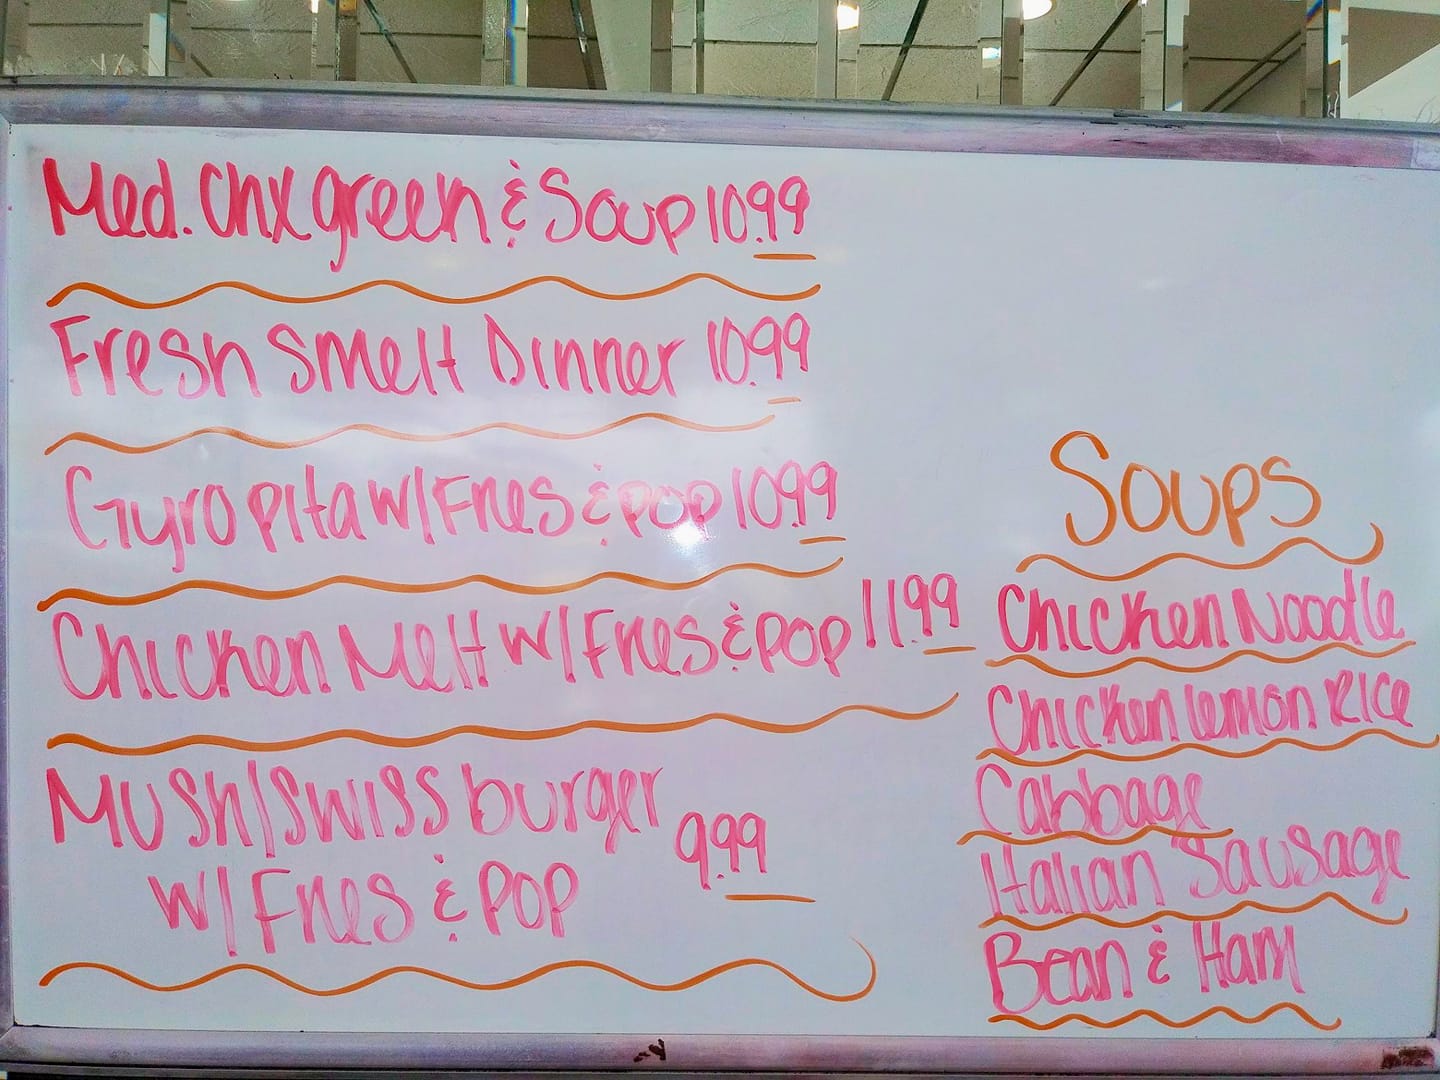 Med. Chx green & Soup 10.99
Fresh Smelt Dinner 10.99
Gyro pita w/Fries & pop 10.99
Chicken Melt w/Fries & pop 11.99
Mush/Swiss burger 9.99
w/Fries & pop
Soups
Chicken Noodle
Chicken lemon Rice
Cabbage
Italian Sausage
Bean & Ham